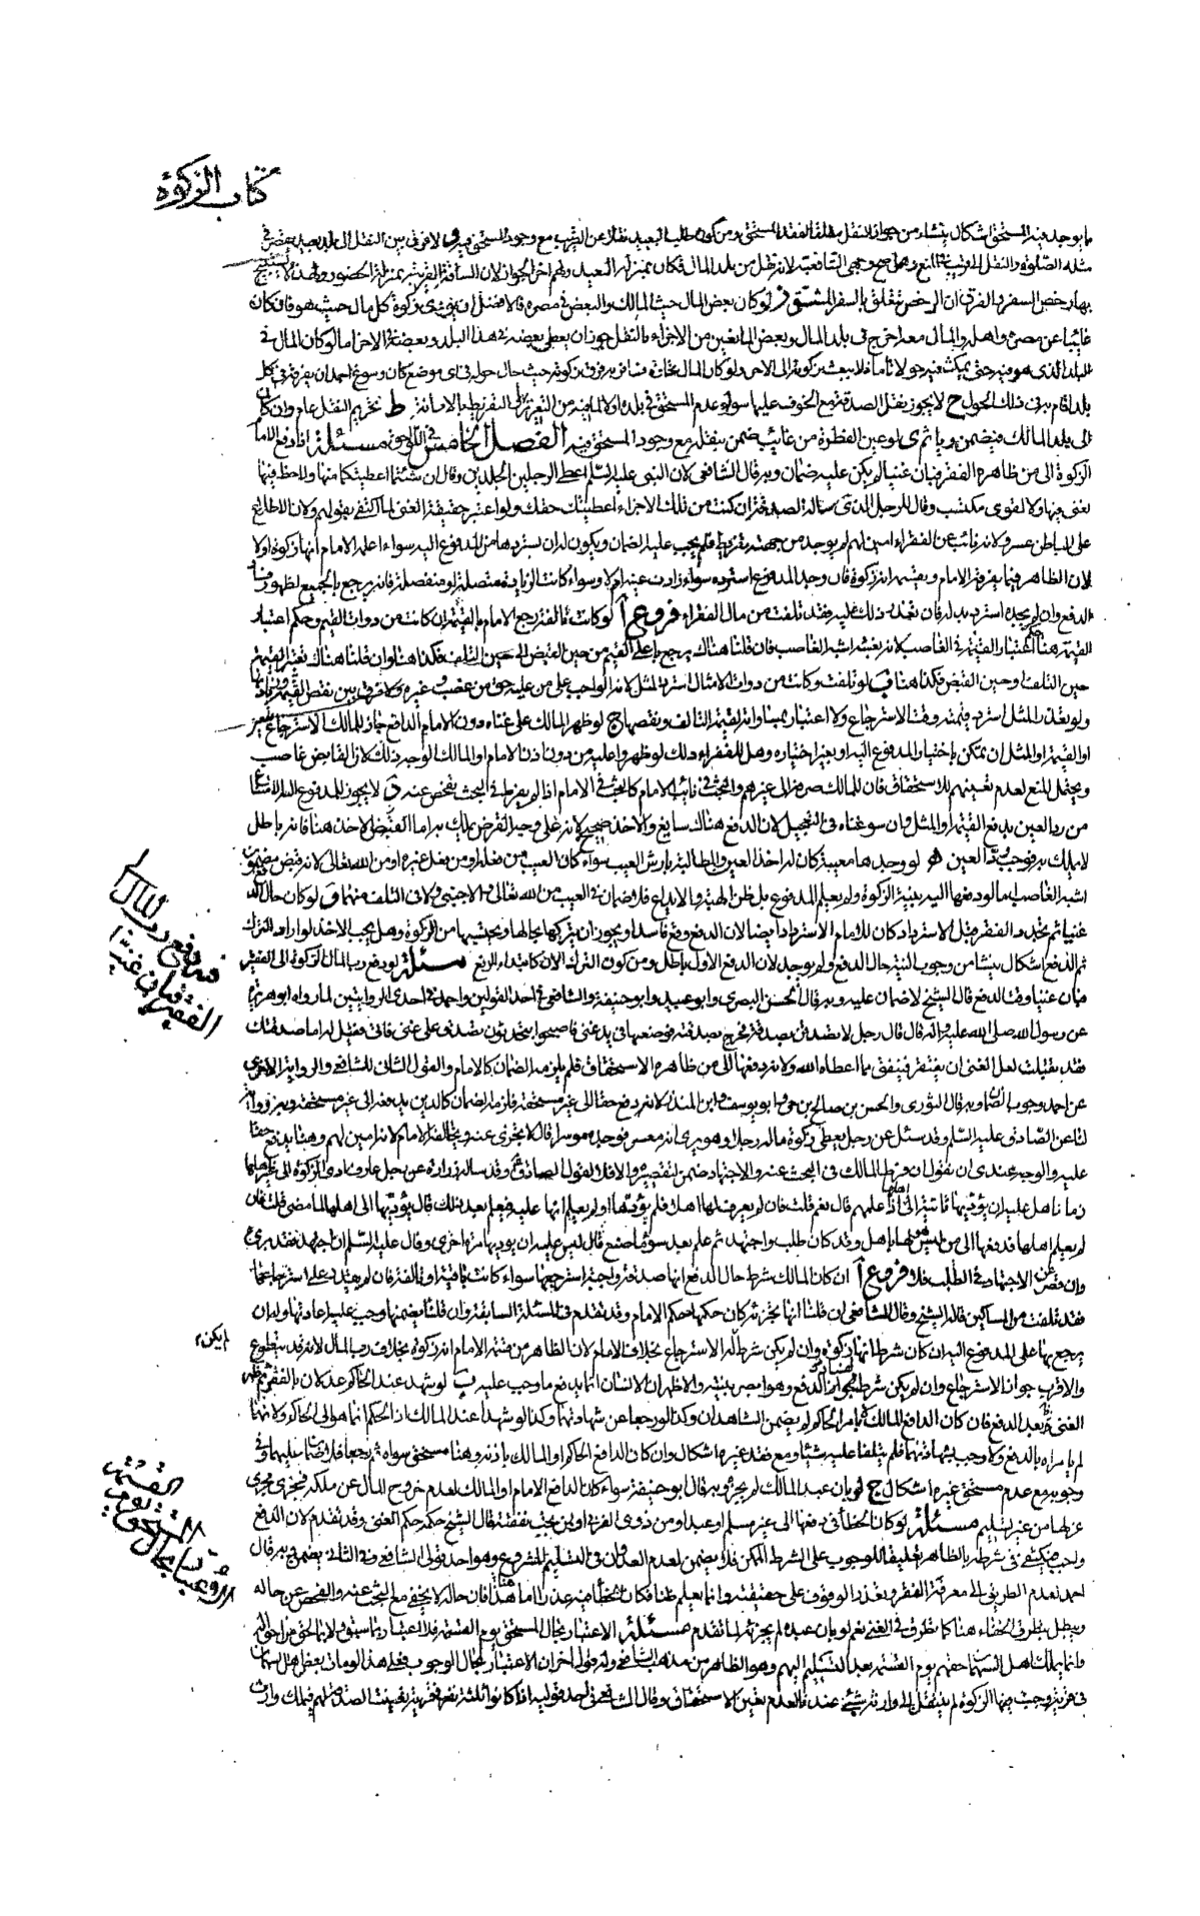 كتاب الزكوة
ما يوجد فيه المستحق اشكال ينشاء من جواز النقل مطلقا لفقد المستحق ومن كون طلب البعيد نقلا عن القريب مع وجود المستحق فيه و لا فرق بين النقل الى بلد بعيد يقصر في
مثله الصلوة والنقل الى قريب وهو اصح وجهي الشافعية لانه نقل من بلد المال فكان بمنزلة البعيد ولهم اخر الجواز لان المسافة القريبة بمنزلة الحضور ولهذا لا يستبيح
بها رخص السفر والفرق ان الرخص تتعلق بالسفر المشتق ز لو كان بعض المال حيث المالك والبعض في مصره فالافضل ان يؤدى زكوة كل مال حيث هو فان كان
غائبا عن مصره واهله والمال معه اخرج في بلد المال وبعض المانعين من الاجزاء بالنقل جوز ان يعطى بعضه في هذا البلد وبعضه في الاخر اما لو كان المال في
البلد الذى هو فيه حتى يمكث فيه حولا تاما فلا يبعث زكوته الى الاخر ولو كان المال تجارة فسافر به فرق زكوته حيث حال حوله في اى موضع كان وسوغ احمد ان يفرقه في كل
بلد اقام به في ذلك الحول ح لا يجوز نقل الصدقة مع الخوف عليها سواء عدم المستحق في بلده اولا لما فيه من التغرير والتفريط بالامانة ط تحريم النقل عام وان كان
الى بلد المالك فيضمن وياثم ى لو عين الفطرة من غائب ضمن بنقله مع وجود المستحق فيه الفصل الخامس في اللواحق مسئلة اذا دفع الامام
الزكوة الى من ظاهره الفقر فبان غنيا لم يكن عليه ضمان وبه قال الشافعى لان النبى عليه السلم اعطى الرجلين الجلدين وقال ان شئتما اعطيتكما منها ولاحظ فيها
لغنى ولا لقوى مكتسب وقال للرجل الذى ساله الصدقة ان كنت من تلك الاجزاء اعطيتك حقك ولو اعتبر حقيقة الغنى لما اكتفى بقولهم ولان الاطلاع
على الباطن عسر ولانه نائب عن الفقراء امين لهم لم يوجد من جهته تفريط فلم يجب عليه الضمان ويكون له ان يستردها من المدفوع اليه سواء اعلمه الامام انها زكوة اولا
لان الظاهر فيما يفرقه الامام ويقسمه انه زكوة فان وجد المدفوع استرده سواء زادت عينه ام لا وسواء كانت الزيادة متصلة او منفصلة فانه يرجع بالجميع لظهور فساد
الدفع وان لم يجده استرد بدله فان تعذر ذلك عليه فقد تلفت من مال الفقراء فروع أ لو كانت تالفة رجع الامام بالقيمة ان كانت من ذوات القيم وحكم اعتبار
القيمة هنا حكم اعتبار القيمة في الغاصب لانه بغشه اشبه الغاصب فان قلنا هناك يرجع باعلى القيم من حين القبض الى حين التلف فكذا هنا وان قلنا هناك تعتبر القيمة
حين التلف او حين القبض فكذا هنا ب لو تلفت وكانت من ذوات الامثال استرد المثل لانه الواجب على من عليه حق من غصب وغيره ولا فرق بين نقص القيمة وزيادتها
ولو تعذر المثل استرد قيمته وقت الاسترجاع ولا اعتبار بمساواته لقيمة التالف ونقصها ج لو ظهر المالك على غناه دون الامام الدافع جاز للمالك الاسترجاع
او القيمة او المثل ان تمكن باختيار المدفوع اليه او بغير اختياره وهل للفقراء ذلك لو ظهروا عليه من دون اذن الامام او المالك الوجه ذلك لان القابض غاصب
ويحتمل المنع لعدم تعينهم للاستحقاق فان للمالك صرفه الى غيرهم والبحث في نائب الامام كالبحث في الامام اذا لم يفرط في البحث والفحص عنه د لا يجوز للمدفوع اليه الامتناع
من رد العين بدفع القيمة او المثل وان سوغناه في التعجيل لان الدفع هناك سايغ والاخذ صحيح لانه على وجه القرض يملك به اما القبض والاخذ هنا فانه باطل
لا يملك به فوجب رد العين هـ لو وجدها معيبة كان له اخذ العين والمطالبة بارش العيب سواء كان العيب من فعله او من فعل غيره او من الله تعالى لانه قبض مضمون
اشبه الغاصب اما لو دفعها اليه بنية الزكوة ولم يعلم المدفوع بل ظن الهبة والايداع فلا ضمان في العيب من الله تعالى ولا الاجنبي ولا في التلف منهما و لو كان حال الدفع
غنيا ثم تجدد الفقر قبل الاسترداد كان للامام الاسترداد ايضا لان الدفع وقع فاسدا ويجوز ان يتركها بحالها ويحتسبها من الزكوة وهل يجب الاخذ لو اراد الترك
ثم الدفع اشكال ينشا من وجوب النية حال الدفع ولم يوجد لان الدفع الاول باطل ومن كون الترك الان كابتداء الدفع مسئلة لو دفع رب المال الزكوة الى الفقير
فبان غنيا وقت الدفع قال الشيخ لا ضمان عليه وبه قال الحسن البصرى وابو عبيد وابو حنيفة والشافعى في احد القولين واحمد في احدى الروايتين لما رواه ابو هريرة
عن رسول الله صلى الله عليه واله قال قال رجل لاتصدقن بصدقة فخرج بصدقته فوضعها في يد غنى فاصبحوا يتحدثون تصدق على غنى فاتى فقيل له اما صدقتك
فقد تقبلت لعل الغنى ان يعتبر فينفق مما اعطاه الله ولانه دفعها الى من ظاهره الاستحقاق فلم يلزمه الضمان كالامام والقول الثانى للشافعى والرواية الاخرى
عن احمد وجوب الضمان وبه قال الثورى والحسن بن صالح بن حى وابو يوسف وابن المنذر لانه دفع حقا الى غير مستحقه فلزمه الضمان كالدين يدفعه الى غير مستحقه
لنا عن الصادق عليه السلم وقد سئل عن رجل يعطى زكوة ماله رجلا وهو يرى انه معسر فوجده موسرا قال لا يجزى عنه ويخالف الامام لانه امين لهم وهنا يدفع حقا
عليه والوجه عندى ان نقول ان فرط المالك في البحث عنه والاجتهاد ضمن لتقصيره والا فلا لقول الصادق وقد ساله زرارة عن رجل عارف ادى الزكوة الى غير اهلها
زمانا هل عليه ان يؤديها ثانية الى اهلها اذا علمهم قال نعم قلت فان لم يعرف لها اهلا فلم يؤدها او لم يعلم انها عليه فعلم بعد ذلك قال يؤديها الى اهلها لما مضى قلت فان
لم يعلم اهلها فدفعها الى من ليس هو لها باهل وقد كان طلب واجتهد ثم علم بعد سوء ما صنع قال ليس عليه ان يؤديها مرة اخرى وقال عليه السلم ان اجتهد فقد برئ
وان قصر عن الاجتهاد في الطلب فلا فروع أ ان كان المالك شرط حال الدفع انها صدقة واجبة استرجعها سواء كانت باقية او تالفة فان لم يقدر على استرجاعها
فقد تلفت من المساكين قاله الشيخ وقال الشافعى ان قلنا انها تجزئه كان حكمها حكم الامام وقد تقدم في المسئلة السابقة وان قلنا يضمنها وجب عليه اعادتها وله ان
يرجع بها على المدفوع اليه ان كان شرط انها زكوة وان لم يكن شرط لم يكن له الاسترجاع بخلاف الامام لان الظاهر من قسمة الامام انه زكوة بخلاف رب المال لانه قد يتطوع
والاقرب جواز الاسترجاع وان لم يكن شرط لفساد الدفع وهو ابصر بنيته والاظهر ان الانسان انما يدفع ما وجب عليه ب لو شهد عند الحاكم عدلان بالفقر ثم ظهر
الغنى بعد الدفع فان كان الدافع المالك بامر الحاكم لم يضمن الشاهدان وكذا لو رجعا عن شهادتهما وكذا لو شهدا عند المالك اذ الحكم انما هو الى الحاكم ولانهما
لم يامراه بالدفع ولا وجب بشهادتهما فلم يتلفا عليه شيئا ومع فقد غيره اشكال وان كان الدافع الحاكم او المالك باذنه وهنا مستحق سواه ثم رجعا فلا ضمان عليهما وفي
وجوبه مع عدم مستحق غيره اشكال ج لو بان عبد المالك لم يجزه وبه قال ابو حنيفة سواء كان الدافع الامام او المالك لعدم خروج المال عن ملكه فجرى مجرى
عزلها من غير تسليم مسئلة لو كان الخطأ في دفعها الى غير مسلم او عبد او من ذوى القربى او من تجب نفقته قال الشيخ حكمه حكم الغنى وقد تقدم لان الدفع
واجب فيكتفى في شرطه بالظاهر تعليقا للوجوب على الشرط الممكن فلا يضمن لعدم العدوان في التسليم المشروع وهو احد قولى الشافعى وفي الثانى يضمن وبه قال
احمد لعدم الطريق الى معرفة الفقر وتعذر الوقوف على حقيقته وانما يعلم ظنا فكان الخطأ فيه عذرا اما هنا فان حاله لا يخفى مع البحث عنه والفحص عن حاله
ويبطل بتطرق الخفاء هنا كما تطرق في الغنى نعم لو بان عبده لم يجزئه لما تقدم مسئلة الاعتبار بحال المستحق يوم القسمة فلا اعتبار بما سبق ولا بما لحق من احواله
وانما يملك اهل السهمان حقهم يوم القسمة بعد التسليم اليهم وهو الظاهر من مذهب الشافعى وله قول اخر ان الاعتبار بحال الوجوب فعلى هذا لو مات بعض اهل السهمان
في قرية وجبت فيها الزكوة لم ينتقل الى وارثه شىء عندنا لعدم تعين الاستحقاق وقال الشافعى في احد قوليه اذا كانوا ثلثة نفر في قرية تعينت الصدقة لهم فيملك وارث
فيما لو دفع رب المال
الفقير فبان غنيا
لم يكن